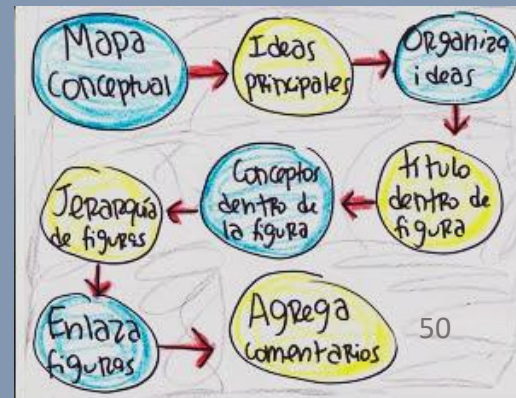 Mapa
Conceptual
Ideas
principales
Organiza
ideas
título
dentro de
figura
Conceptos
dentro de
la figura
Jerarquía
de figuras
Enlaza
figuras
Agrega
comentarios
50